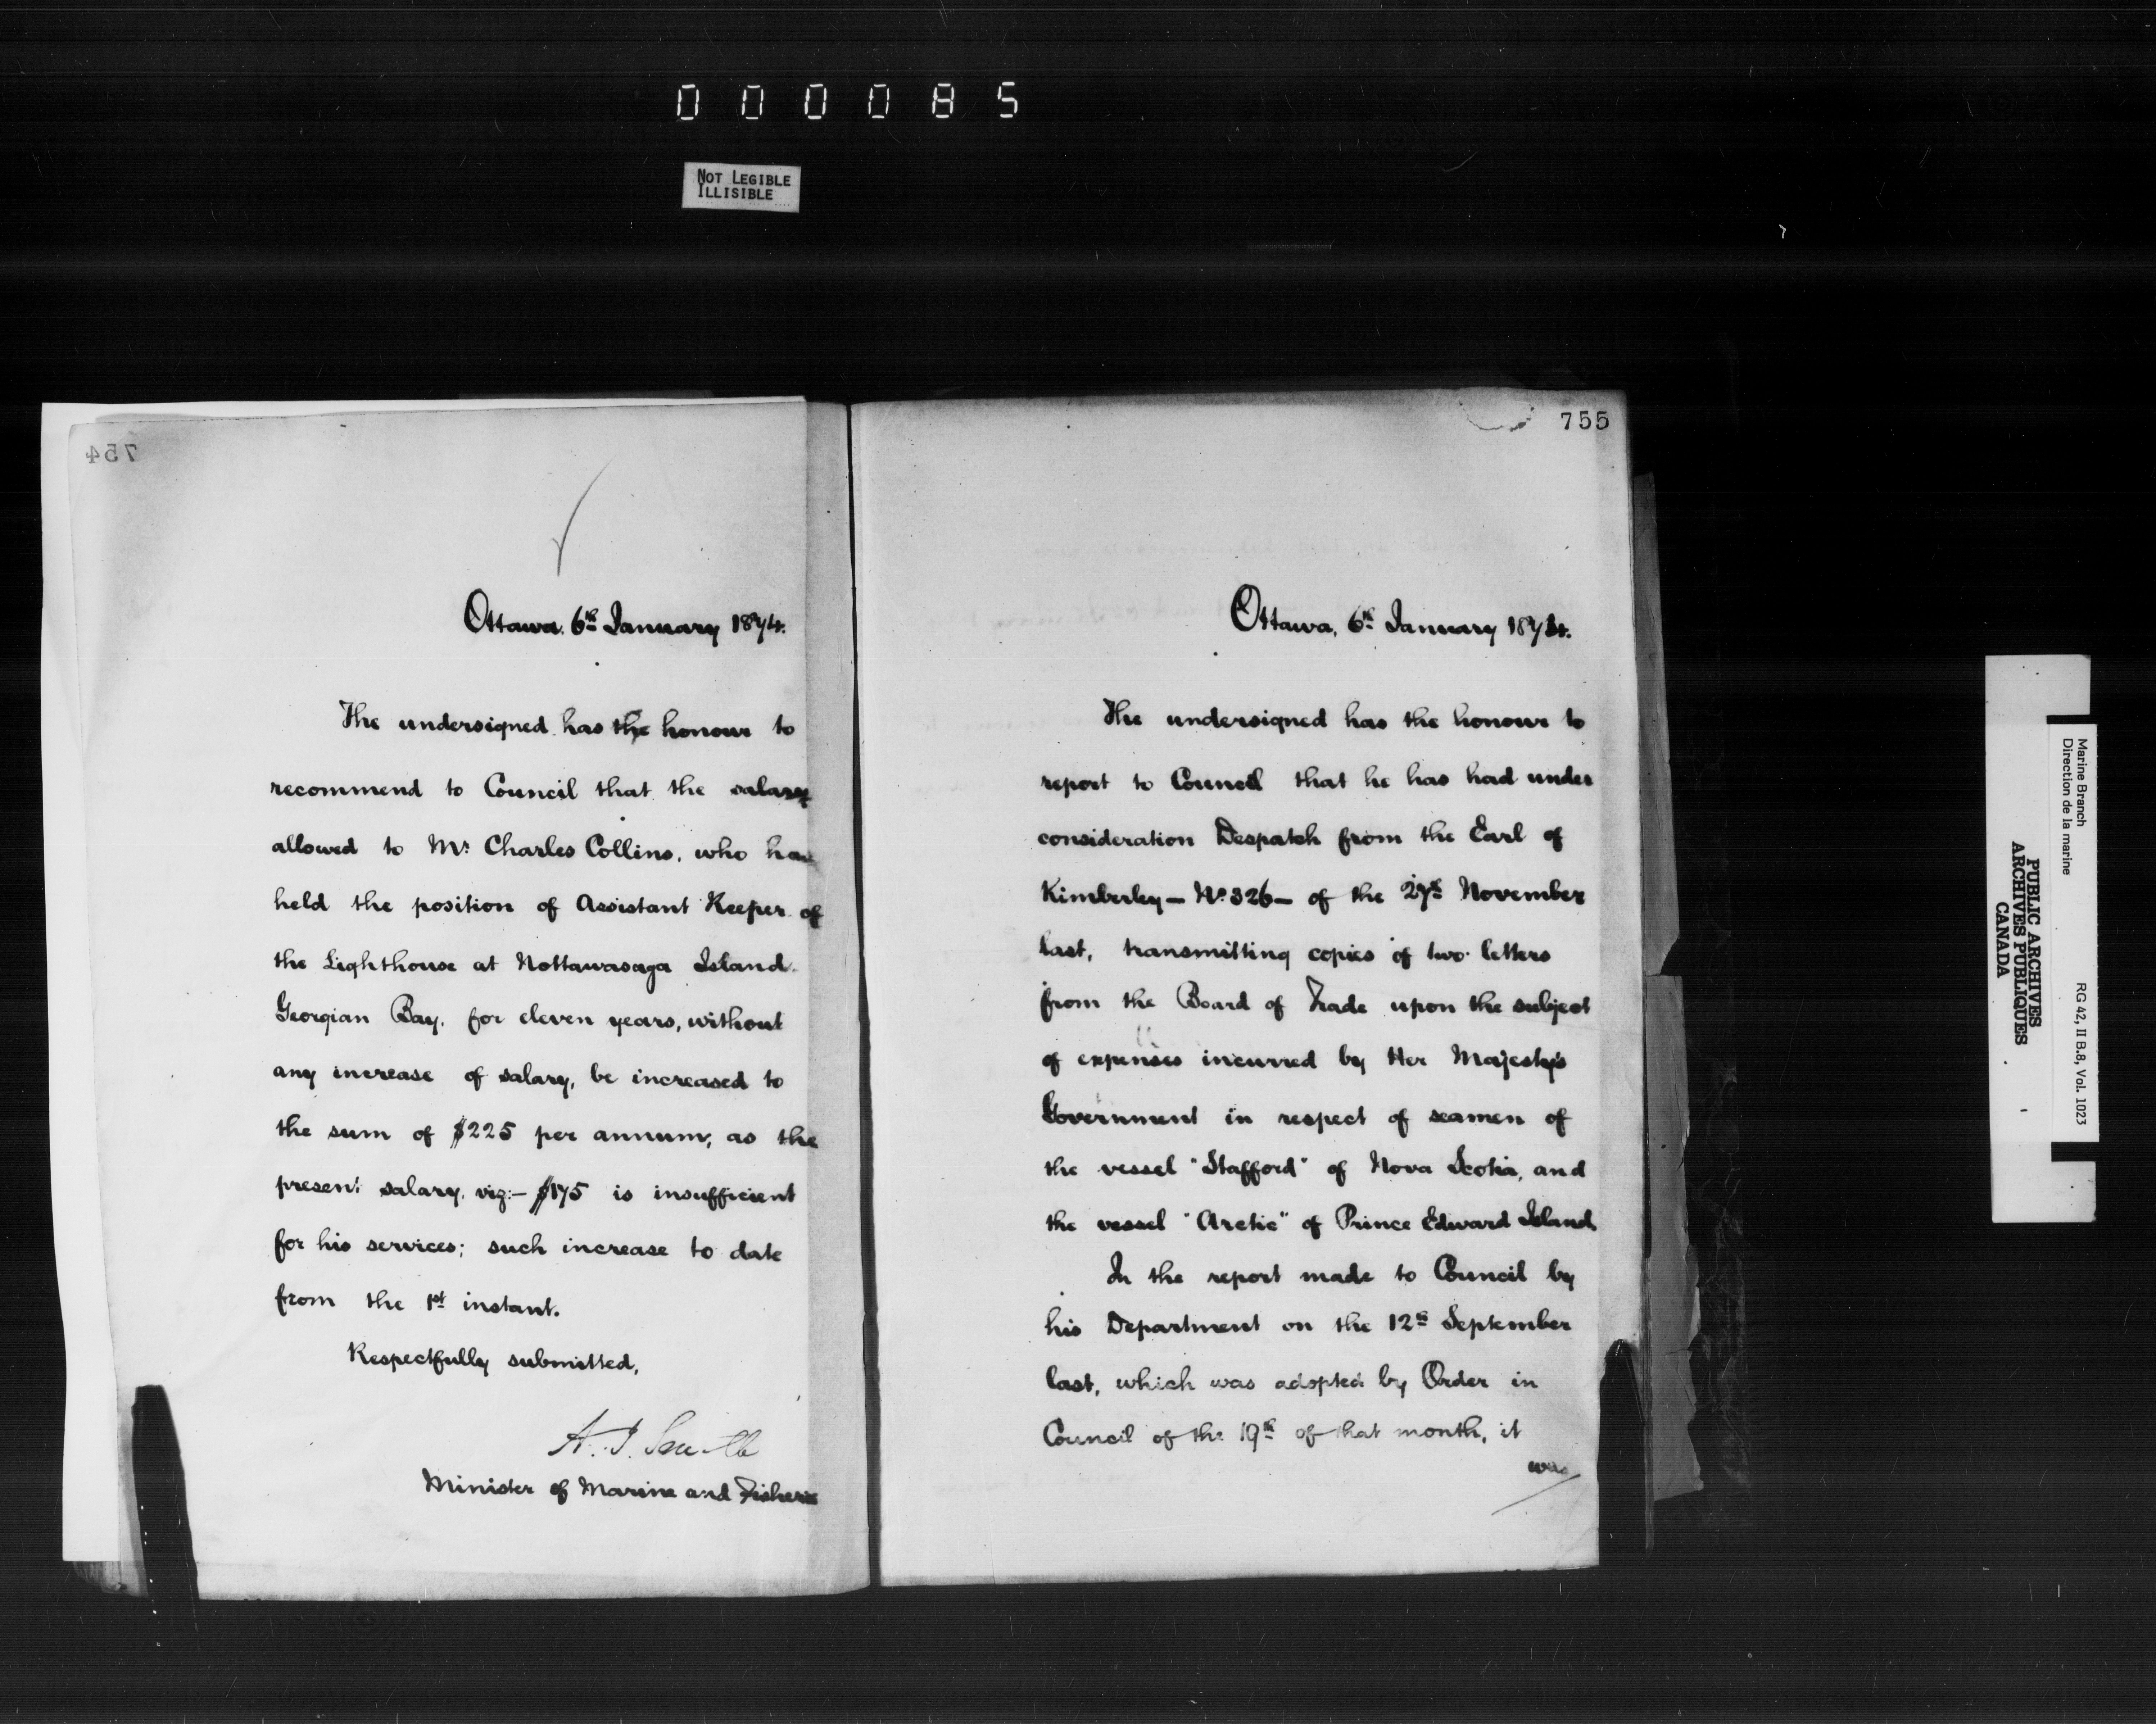 000085
NOT LEGIBLE
ILLISIBLE
754
Ottawa. 6th January 1874.
The undersigned has the honour to
recommend to Council that the salary
allowed to Mr. Charles Collins, who has
held the position of Assistant Keeper of
the Lighthouse at Nottawasaga Island.
Georgian Bay, for eleven years, without
any increase of salary, be increased to
the sum of $225 per annum, as the
present salary, viz:– $175 is insufficient
for his services; such increase to date
from the 1st instant.
Respectfully submitted,
A. J. Smith
Minister of Marine and Fisheries
755
Ottawa, 6th January 1874.
The undersigned has the honour to
report to Council that he has had under
consideration Despatch from the Earl of
Kimberley – No. 326 – of the 27th November
last, transmitting copies of two letters
from the Board of Trade upon the subject
of expenses incurred by Her Majesty's
Government in respect of seamen of
the vessel "Stafford" of Nova Scotia, and
the vessel "Arctic" of Prince Edward Island
In the report made to Council by
his Department on the 12th September
last, which was adopted by Order in
Council of the 19th of that month, it
was
Marine Branch
Direction de la marine
RG 42, II B.8, Vol. 1023
PUBLIC ARCHIVES
ARCHIVES PUBLIQUES
CANADA